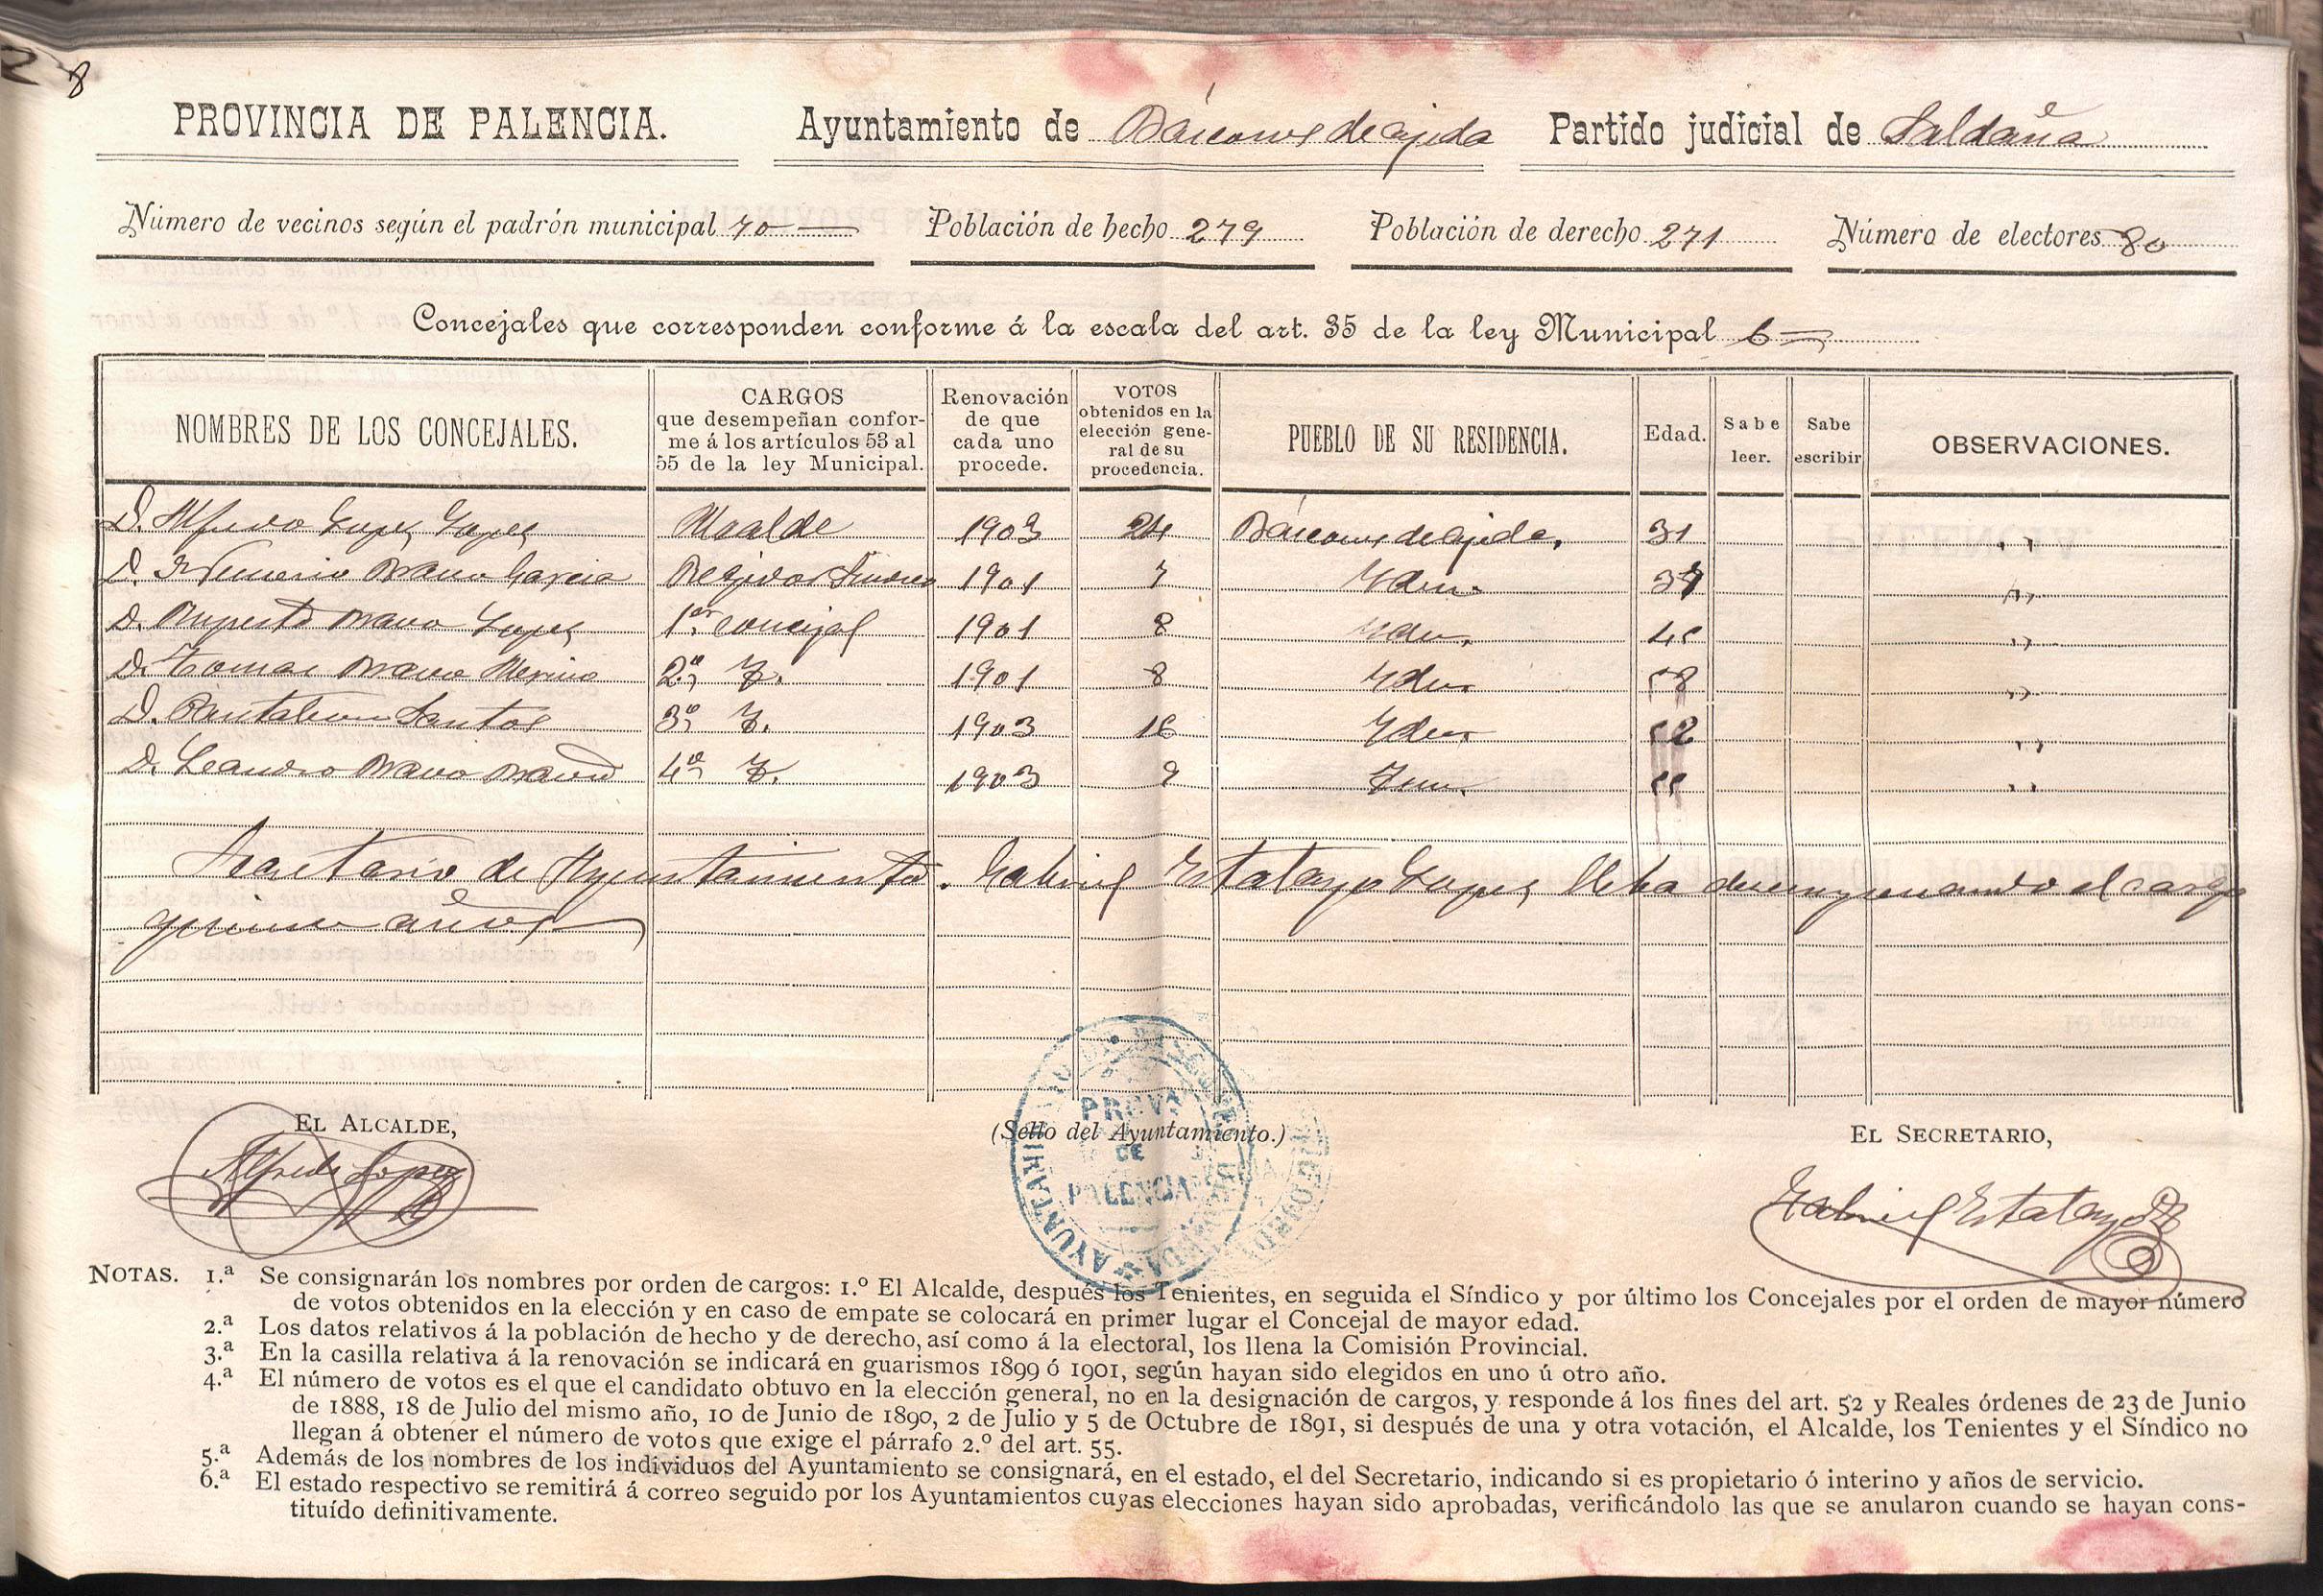 8
PROVINCIA DE PALENCIA. Ayuntamiento de Bárcena de ojeda Partido judicial de Saldaña
Número de vecinos según el padrón municipal 70 Población de hecho 279 Población de derecho 271 Número de electores 80
Concejales que corresponden conforme á la escala del art. 35 de la ley Municipal 6
NOMBRES DE LOS CONCEJALES. CARGOS que desempeñan conforme á los artículos 53 al 55 de la ley Municipal. Renovación de que cada uno procede. VOTOS obtenidos en la elección general de su procedencia. PUEBLO DE SU RESIDENCIA. Edad. Sabe leer. Sabe escribir OBSERVACIONES.
D. Alfredo Lopez Lopez Alcalde 1903 24 31 ,,
D. Bravo Garcia Regidor Sindico 1901 7 Idem ,,
D. Ruperto Bravo Lopez 1er concejal 1901 8 Idem ,,
D. Tomas Bravo Merino 2º 1901 8 Idem 58 ,,
D. Pantaleon Santos 3º 1903 Idem 52 ,,
D. Leandro Bravo Bravo 4º 1903 9 55 ,,
Secretario de Ayuntamiento. Gabriel Estalayo Lopez lleba desempeñando el cargo
quince años
EL ALCALDE, (Sello del Ayuntamiento.) EL SECRETARIO,
Alfredo Lopez
PROVA DE PALENCIA
AYUNTAMIENTO
Gabriel Estalayo
NOTAS. 1.ª Se consignarán los nombres por orden de cargos: 1.º El Alcalde, después los Tenientes, en seguida el Síndico y por último los Concejales por el orden de mayor número
de votos obtenidos en la elección y en caso de empate se colocará en primer lugar el Concejal de mayor edad.
2.ª Los datos relativos á la población de hecho y de derecho, así como á la electoral, los llena la Comisión Provincial.
3.ª En la casilla relativa á la renovación se indicará en guarismos 1899 ó 1901, según hayan sido elegidos en uno ú otro año.
4.ª El número de votos es el que el candidato obtuvo en la elección general, no en la designación de cargos, y responde á los fines del art. 52 y Reales órdenes de 23 de Junio
de 1888, 18 de Julio del mismo año, 10 de Junio de 1890, 2 de Julio y 5 de Octubre de 1891, si después de una y otra votación, el Alcalde, los Tenientes y el Síndico no
llegan á obtener el número de votos que exige el párrafo 2.º del art. 55.
5.ª Además de los nombres de los individuos del Ayuntamiento se consignará, en el estado, el del Secretario, indicando si es propietario ó interino y años de servicio.
6.ª El estado respectivo se remitirá á correo seguido por los Ayuntamientos cuyas elecciones hayan sido aprobadas, verificándolo las que se anularon cuando se hayan cons-
tituído definitivamente.